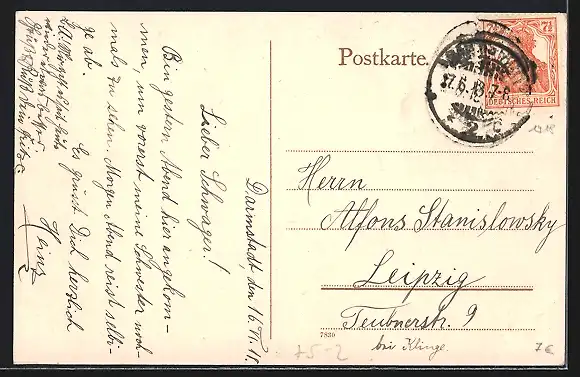 Postkarte.
7½
DEUTSCHES REICH
17.6.18. 7-8
Darmstadt den 16. VI. 18.
Lieber Schwager!
Bin gestern Abend hier angekom-
men, um vorerst meine Schwester noch-
mals zu sehen. Morgen Abend reist selbi-
ge ab.
Es grüsst Dich herzlich
Heinz
Herrn
Alfons Stanislowsky
Leipzig
Teubnerstr. 9
bei Klinge.
7830
75-2
7€